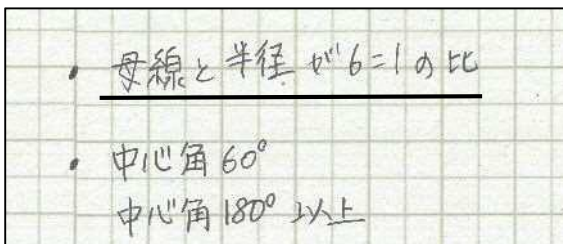 ・母線と半径が6=1の比
・中心角60°
中心角180°以上